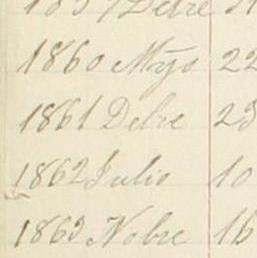 1859 Debre 31
1860 Myo 22
1861 Debre 23
1862 Julio 10
1863 Nobre 16